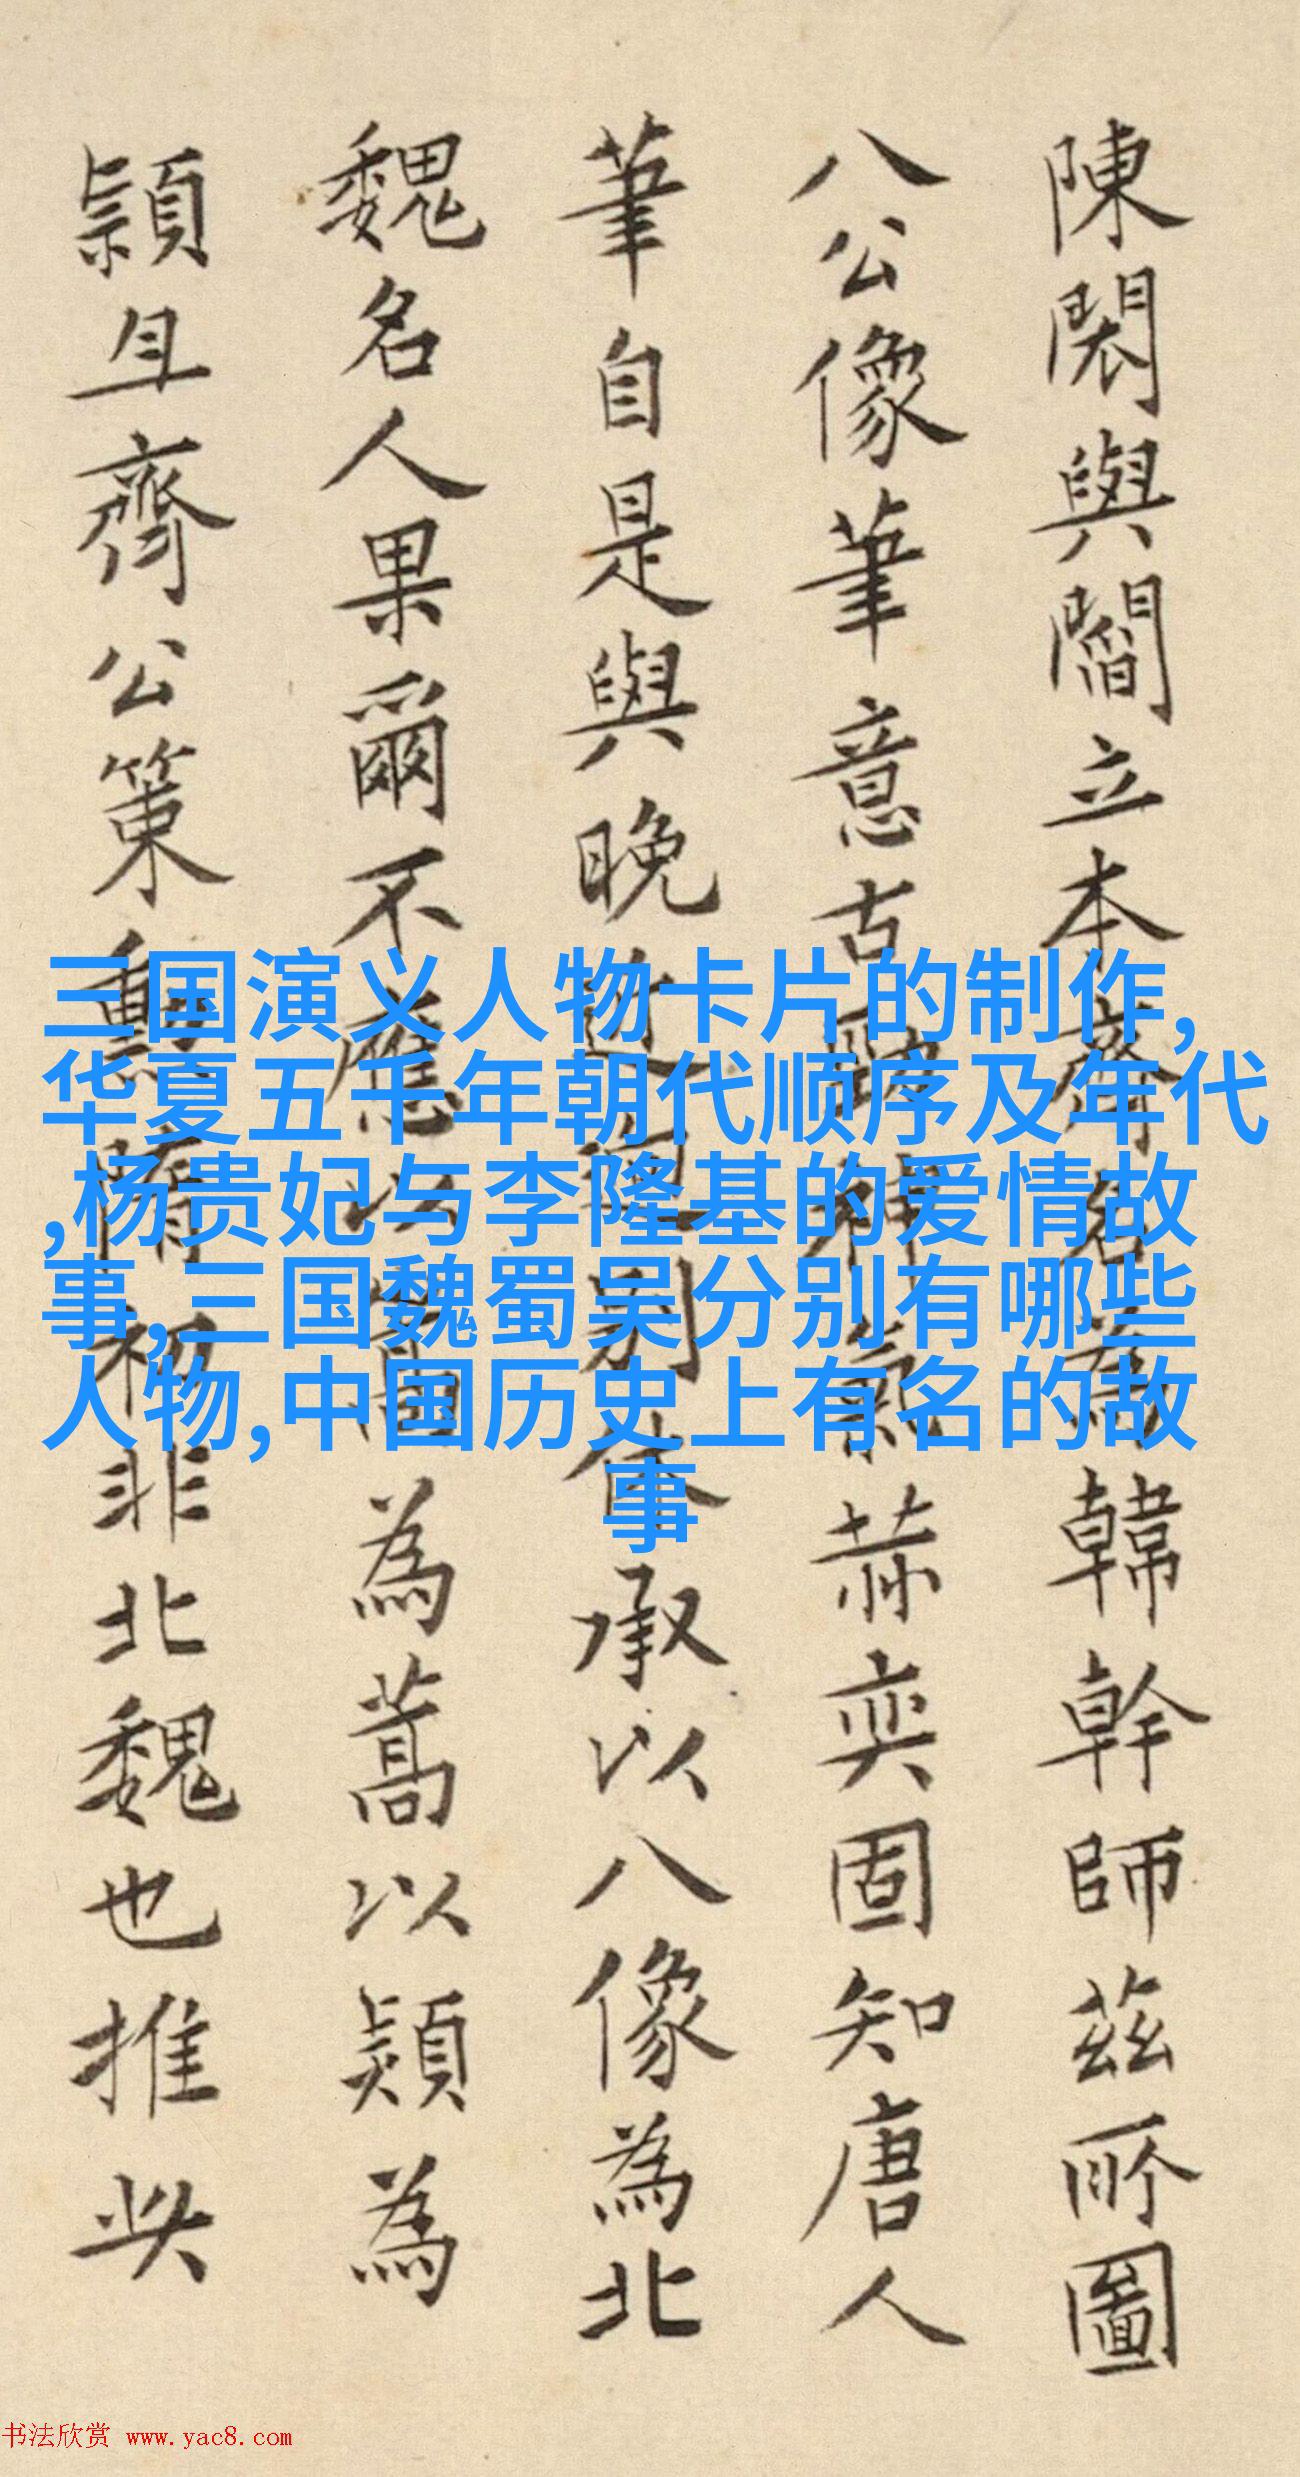 陳閎與閻立本齊名為韓幹師茲所圖
八公像筆意古
赫奕固知唐人
筆自是與晚
承以八像為北
魏名人果爾不應以
為蒿以熲為
熲耳齊公策勳隋初非北魏也推此
三国演义人物卡片的制作,
华夏五千年朝代顺序及年代
,杨贵妃与李隆基的爱情故
事,三国魏蜀吴分别有哪些
人物,中国历史上有名的故
事
书法欣赏 www.yac8.com